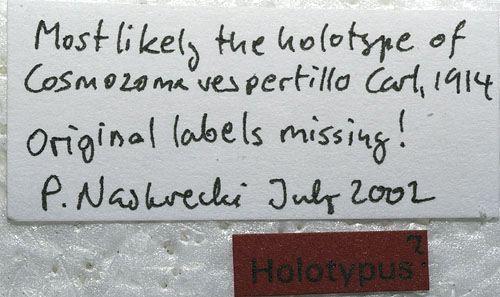 Most likely the holotype of
Cosmozoma vespertillo Carl, 1914
Original labels missing!
P. Naskrecki July 2002
?
Holotypus